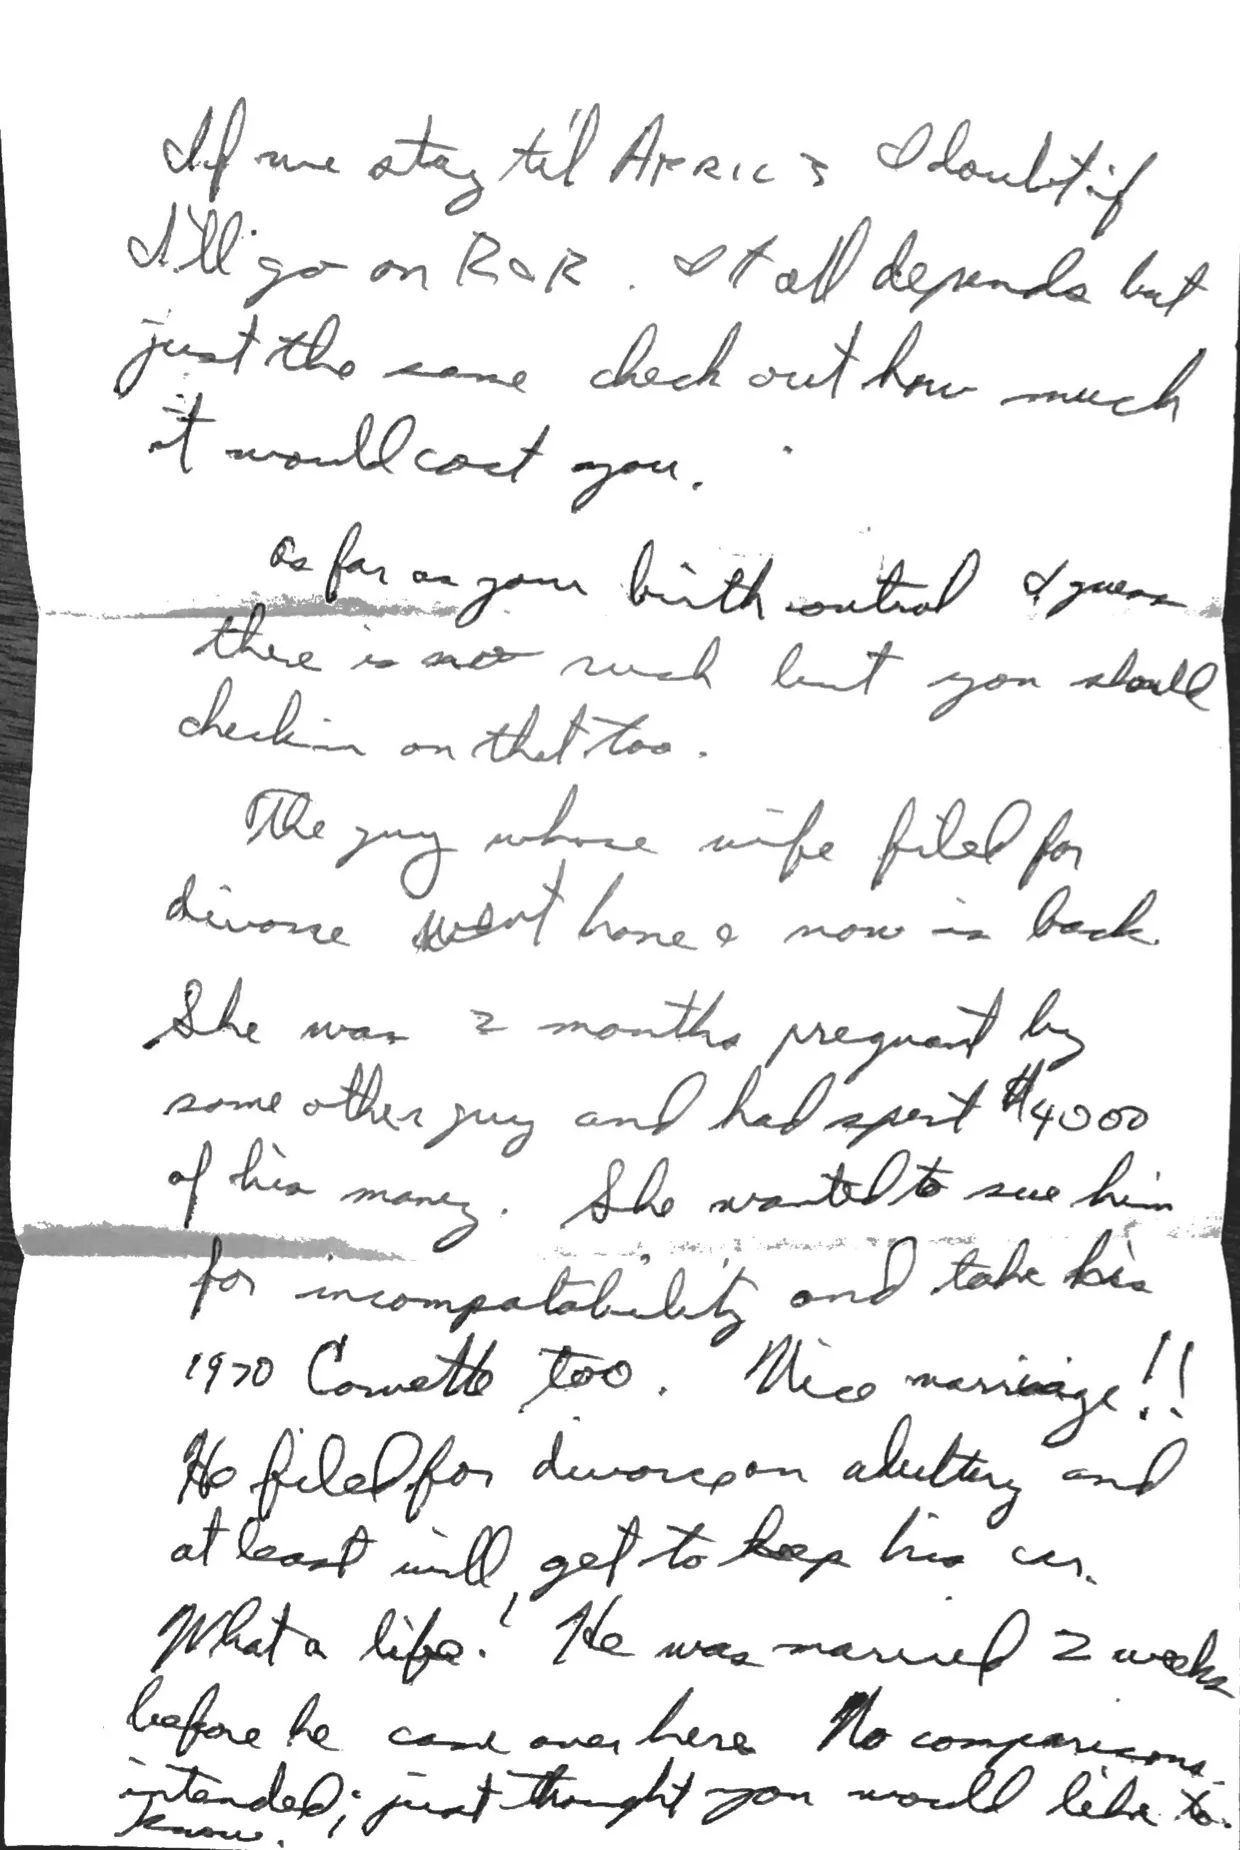 If we stay til' APRIL 3 I doubt if
I'll go on R & R. It all depends but
just the same check out how much
it would cost you.
As far as your birth control I guess
there is no rush but you should
check in on that too.
The guy whose wife filed for
divorce went home & now is back.
She was 2 months pregnant by
some other guy and had spent $4000
of his money. She wanted to sue him
for incompatability and take his
1970 Corvette too. Nice marriage!!
He filed for divorce on adultery and
at least will get to keep his car.
What a life! He was married 2 weeks
before he came over here. No comparisons
intended; just thought you would like to
know.